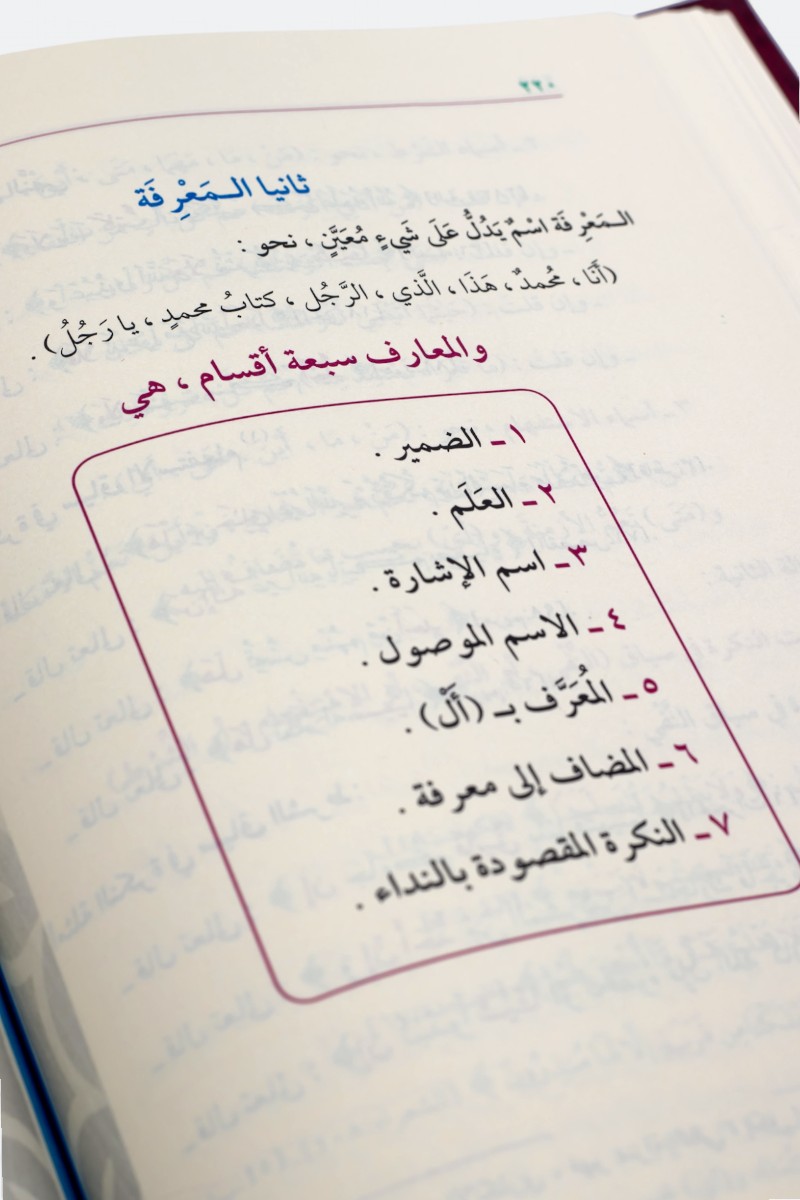 ٢٢٠
ثانيا الـمَعْرِفَة
الـمَعْرِفَة اسْمٌ يَدُلُّ عَلَى شَيءٍ مُعَيَّنٍ ، نحو :
(أَنَا ، مُحمدٌ ، هَذَا ، الَّذي ، الرَّجُل ، كتابُ محمدٍ ، يا رَجُلُ) .
والمعارف سبعة أقسام ، هي
١ـ الضمير .
٢ـ العَلَم .
٣ـ اسم الإشارة .
٤ـ الاسم الموصول .
٥ـ المُعَرَّف بـ (أَلْ) .
٦ـ المضاف إلى معرفة .
٧ـ النكرة المقصودة بالنداء .